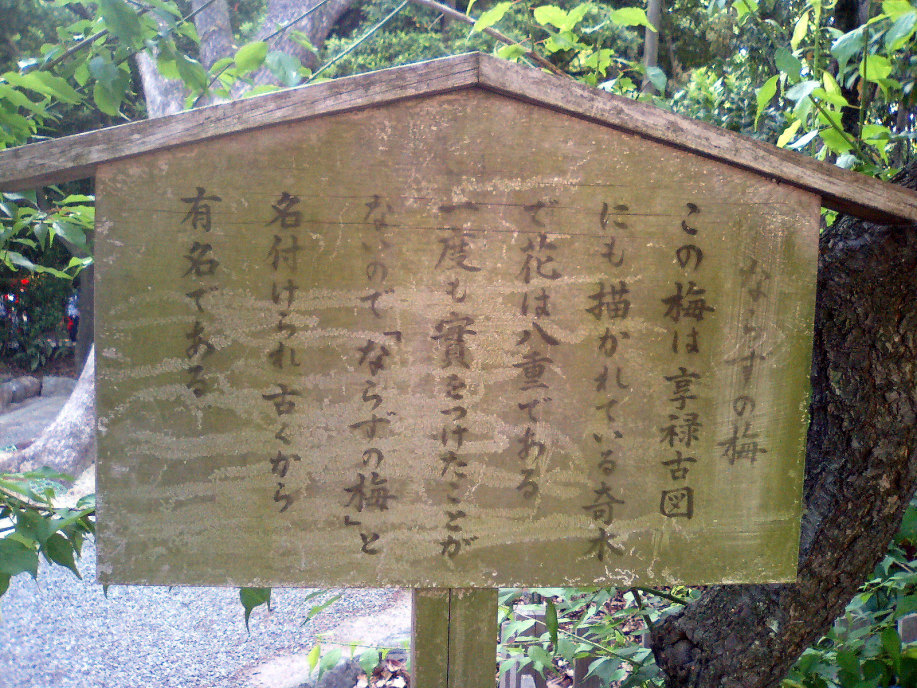 ならずの梅
この梅は享禄古図
にも描かれている奇木
で花は八重である
一度も實をつけたことが
ないので「ならずの梅」と
名付けられ古くから
有名である